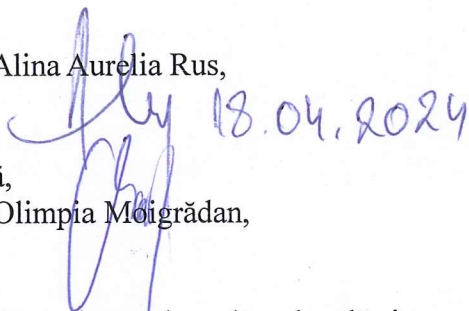 Alina Aurelia Rus,
18.04.2024
ă,
Olimpia Moigrădan,